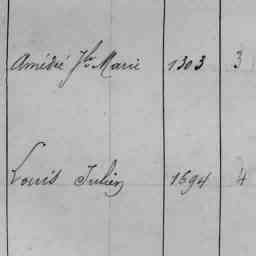 Amédée Jh Marie 1303 3
Louis Julien 1694 4